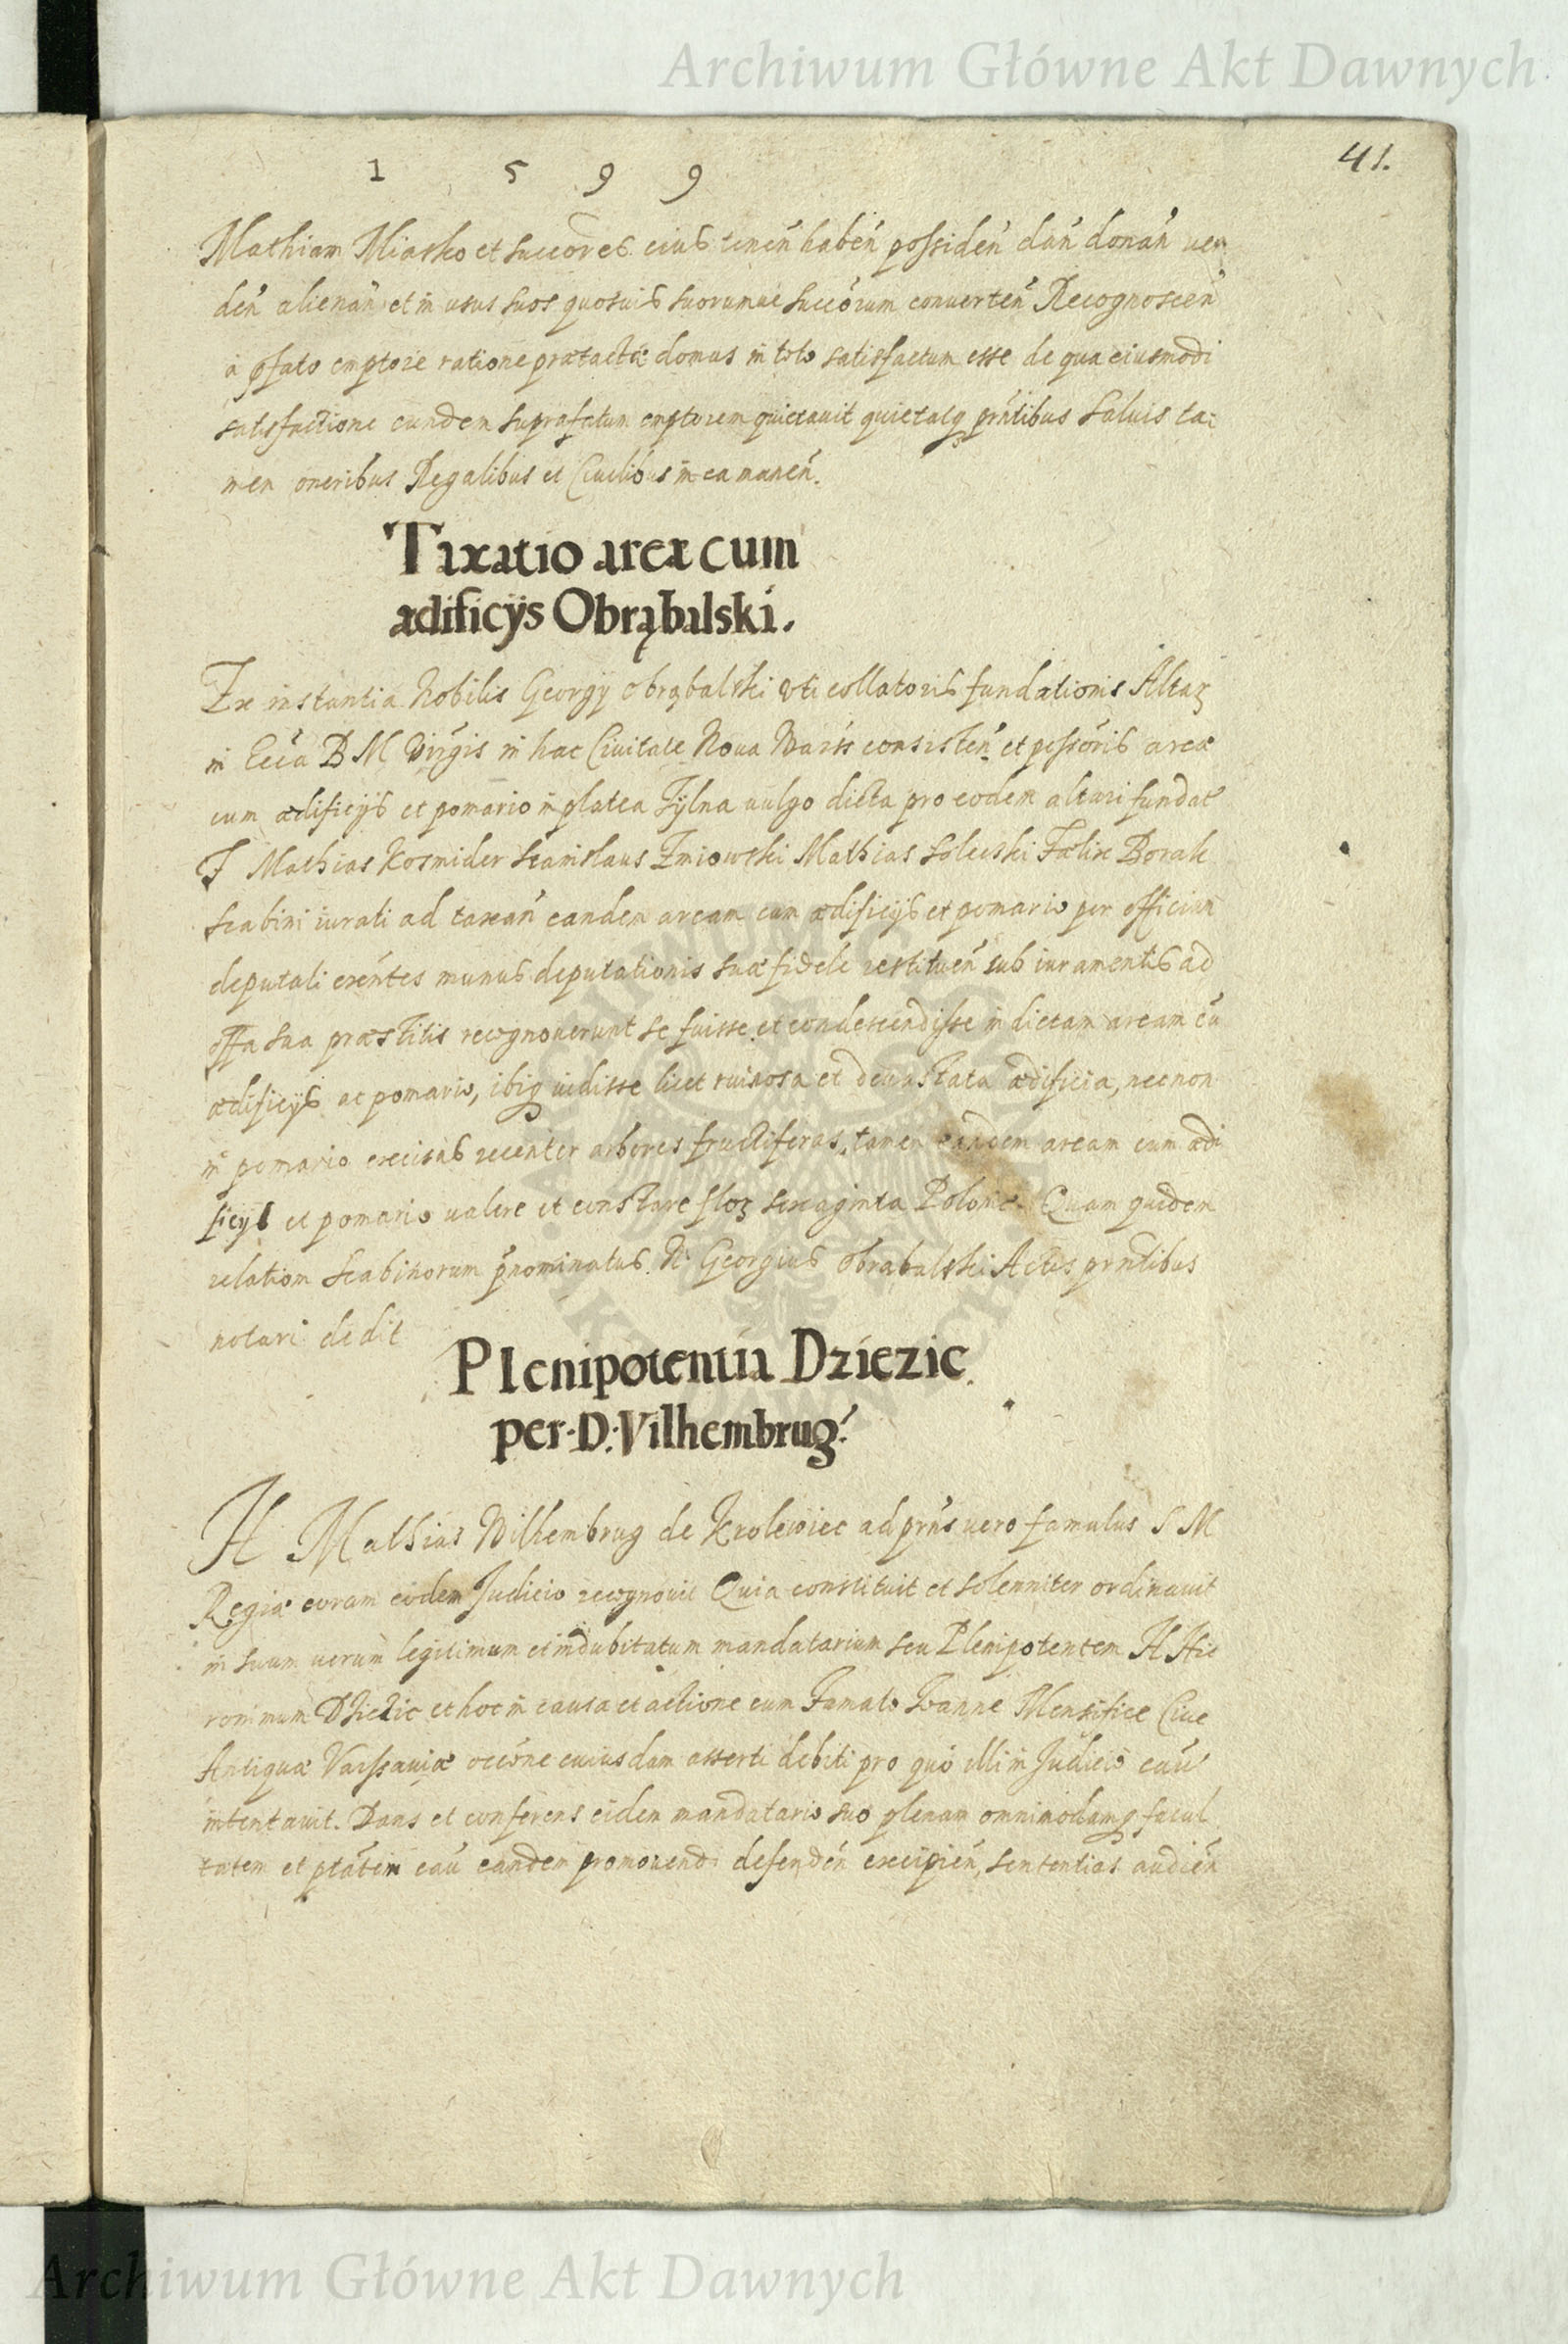 Archiwum Główne Akt Dawnych
41.
1 5 9 9
Mathiam Miasko et succores eius tenen̄ haben̄ possiden̄ dan̄ donan̄ uen
den̄ alienan̄ et in usus suos quosuis suorumue succorum conuerten̄ Recognoscen̄
a pfato emptore ratione prætactæ domus in toto satisfactum esse de qua eiusmodi
satisfactione eundem suprafatum emptorem quietauit quietatq prntibus Saluis ta:
men oneribus Regalibus et Ciuilibus in ea manen̄.
Taxatio areæ cum
ædificÿs Obrąbalski.
Ex instantia Nobilis Georgÿ Obrąbalski vti collatoris fundationis Altar
in Ecca B M Virgis in hac Ciuitate Noua Wars consisten̄ et possoris areæ
cum ædificÿs et pomario in platea Tÿlna uulgo dicta pro eodem altari fundat
F Mathias Kosmider Stanislaus Zmiowski Mathias Solecski Fælix Borak
Scabini iurati ad taxan̄ eandem aream cum ædificÿs et pomario per officium
deputati exentes munus deputationis suæ fidele restituen̄ sub iuramentis ad
offa sua præstitis recognouerunt se fuisse et condescendisse in dictam aream cū
ædificÿs ac pomario, ibiq uidisse licet ruinosa et deuastata ædificia, necnon
in pomario excisas recenter arbores fructiferas, tamen eandem aream cum ædi
ficÿs et pomario ualere et constare flor sexaginta Polonic. Quam quidem
relatiom Scabinorum prnominatus N. Georgius Obrąbalski Actis prntibus
notari dedit
Plenipotentia Dziezic
per D: Vilhembrug
H Mathias Wilhembrug de Krolewiec ad prns uero famulus S M
Regiæ coram eodem Judicio recognouit Quia constituit et solenniter ordinauit
in suum uerum legitimum et indubitatum mandatarium seu Plenipotentem H Hie
ronimum Dziezic et hoc in causa et actione cum Famato Ioanne Mensifice Ciue
Antiquæ Varssauiæ occone cuiusdam asserti debiti pro quo illi in Judicio cau
intentauit. Dans et conferens eidem mandatario suo plenam omnimodamq facul
tatem et ptatem cau eandem promouendi defenden̄ excipien̄, sententias audien̄
Archiwum Główne Akt Dawnych